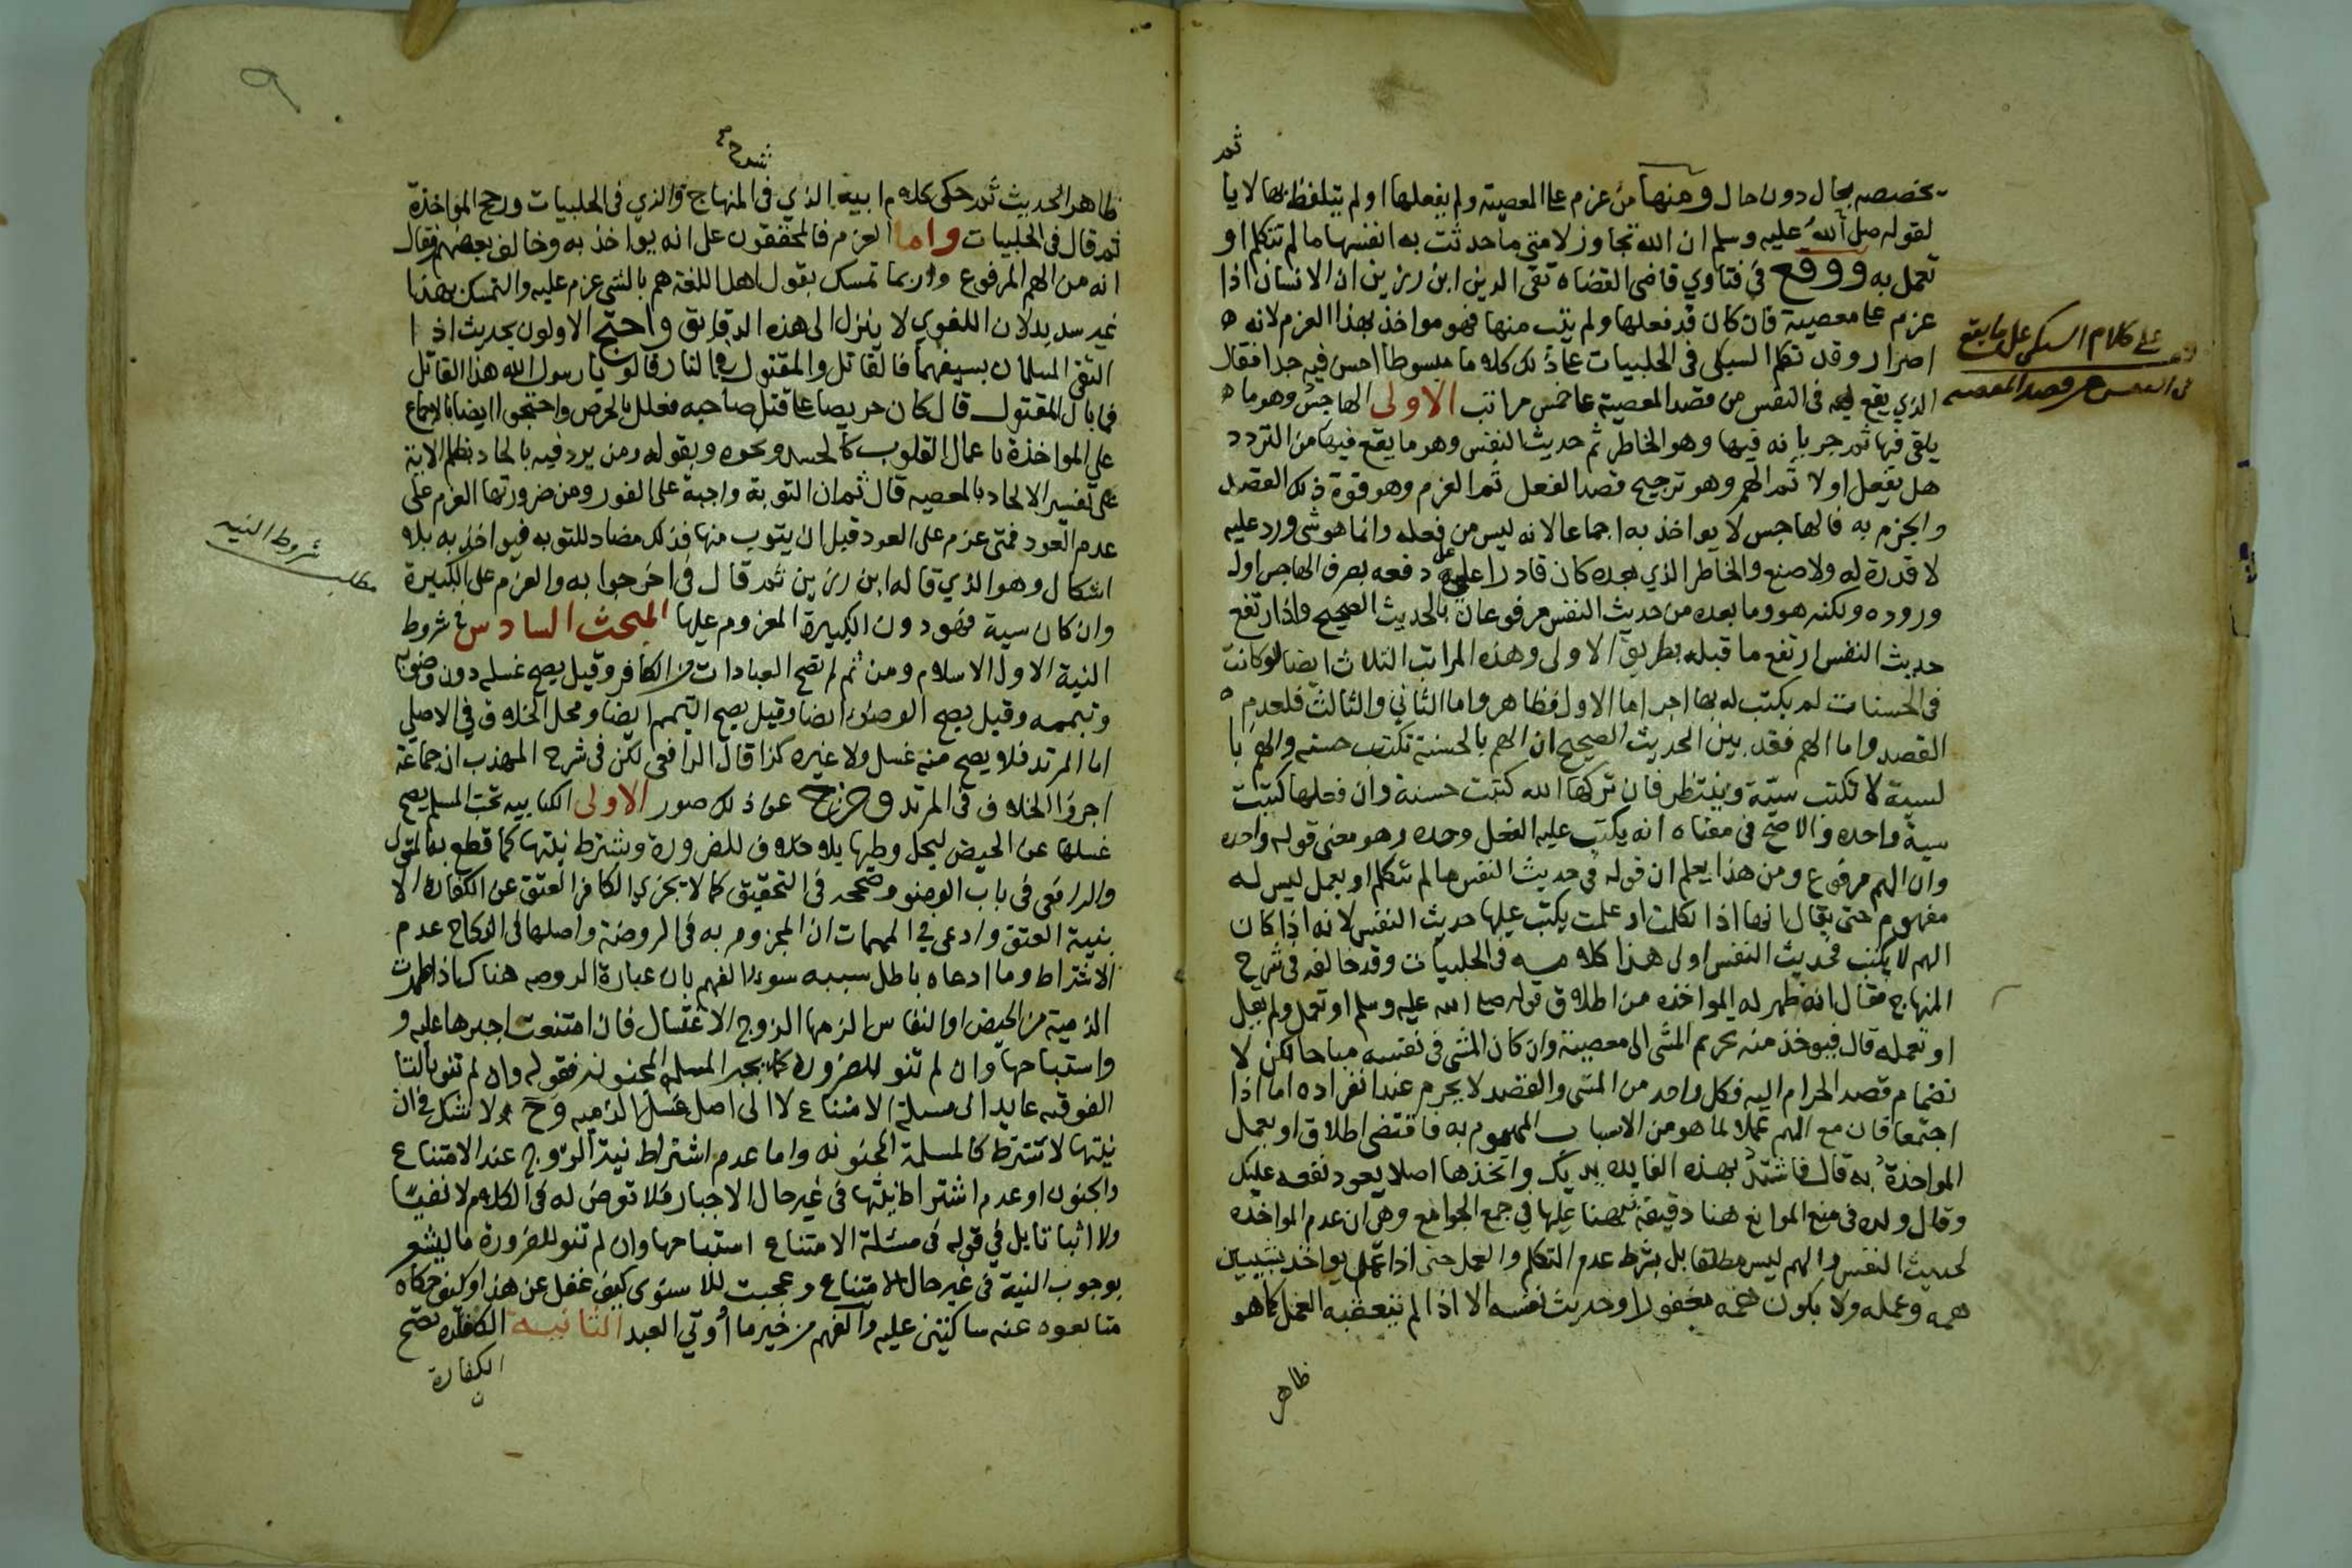 تخصصه بحال دون حال ومنها من عزم على المعصية ولم يفعلها او لم يتلفظ بها لا ياثم
لقوله صلى الله عليه وسلم ان الله تجاوز لامتي ما حدثت به انفسها ما لم تتكلم او
تعمل به ووقع في فتاوي قاضى القضاه تقى الدين ابن رزين ان الانسان اذا
عزم على معصية فان كان قد فعلها ولم يتب منها فهو مواخذ بهذا العزم لانه
اصرار وقد تكلم السبكى فى الحلبيات على ذلك كلاما مبسوطا احسن فيه جدا فقال
الذي يقع فى النفس من قصد المعصية على خمس مراتب الاولى الهاجس وهو ما
يلقى فيها ثم جريانه فيها وهو الخاطر ثم حديث النفس وهو ما يقع فيها من التردد
هل يفعل اولا ثم الهم وهو ترجيح قصد الفعل ثم العزم وهو قوة ذلك القصد
والجزم به فالهاجس لا يواخذ به اجماعا لانه ليس من فعله وانما هو شى ورد عليه
لا قدرة له ولا صنع والخاطر الذي بعده كان قادرا على دفعه بصرف الهاجس اول
وروده ولكنه هو وما بعده من حديث النفس مرفوعان بالحديث الصحيح واذا ارتفع
حديث النفس ارتفع ما قبله بطريق الاولى وهذه المراتب الثلاث ايضا لو كانت
فى الحسنات لم يكتب له بها اجر اما الاول فظاهر واما الثاني والثالث فلعدم
القصد واما الهم فقد بين الحديث الصحيح ان الهم بالحسنة تكتب حسنه والهم با
لسية لا تكتب سيئة وينتظر فان تركها لله كتبت حسنة وان فعلها كتبت
سية واحده والاصح فى معناه انه يكتب عليه الفعل وحده وهو معنى قوله واحده
وان الهم مرفوع ومن هذا يعلم ان قوله في حديث النفس ما لم تتكلم او يعمل ليس له
مفهوم حتى يقال انها اذا تكلمت او عملت يكتب عليها حديث النفس لانه اذا كان
الهم لا يكتب فحديث النفس اولى هذا كلامه فى الحلبيات وقد خالفه فى شرح
المنهاج فقال انه ظهر له المواخذه من اطلاق قوله صلى الله عليه وسلم او تعمل ولم يقل
او تعمله قال فيوخذ منه تحريم المشى الى معصية وان كان المشى فى نفسه مباحا لكن لا
نضمام قصد الحرام اليه فكل واحد من المشى والقصد لا يحرم عند انفراده اما اذا
اجتمعا فان مع الهم عملا لما هو من الاسباب المهموم به فاقتضى اطلاق او يعمل
المواخذة به قال فاشدد بهذه الفايده يديك واتخذها اصلا يعود نفعه عليك
وقال ولده فى منع الموانع هنا دقيقة نبهنا عليها في جمع الجوامع وهي ان عدم المواخذه
لحديث النفس والهم ليس مطلقا بل بشرط عدم التكلم والعمل حتى اذا عمل يواخذ بشيين
همه وعمله ولا يكون همه مغفورا وحديث نفسه الا اذا لم يتعقبه العمل كما هو
ظاهر
على كلام السبكى على ما يقع
فى النفس من قصد المعصيه
٩
شرح
ظاهر الحديث ثم حكى كلام ابيه الذي فى المنهاج والذي فى الحلبيات ورجح المواخذة
ثم قال فى الحلبيات واما العزم فالمحققون على انه يواخذ به وخالف بعضهم فقال
انه من الهم المرفوع وربما تمسك بقول اهل اللغة هم بالشى عزم عليه والتمسك بهذا
غير سديد لان اللغوي لا ينزل الى هذه الدقايق واحتج الاولون بحديث اذا
التقى المسلمان بسيفهما فالقاتل والمقتول فى النار قالوا يا رسول الله هذا القاتل
فما بال المقتول قال كان حريصا على قتل صاحبه فعلل بالحرص واحتجوا ايضا بالاجماع
على المواخذة باعمال القلوب كالحسد ونحوه وبقوله ومن يرد فيه بالحاد بظلم الاية
على تفسير الالحاد بالمعصيه قال ثم ان التوبة واجبة على الفور ومن ضرورتها العزم على
عدم العود فمتى عزم على العود قبل ان يتوب منها فذلك مضاد للتوبه فيواخذ به بلا
اشكال وهو الذي قاله ابن رزين ثم قال فى اخر جوابه والعزم على الكبيرة
وان كان سية فهو دون الكبيرة المعزوم عليها المبحث السادس في شروط
النية الاول الاسلام ومن ثم لم تصح العبادات من الكافر وقيل يصح غسله دون وضويه
وتيممه وقيل يصح الوضوء ايضا وقيل يصح التيمم ايضا ومحل الخلاف في الاصلي
اما المرتد فلا يصح منه غسل ولا غيره كذا قال الرافعى لكن فى شرح المهذب ان جماعة
اجروا الخلاف فى المرتد وخرج عن ذلك صور الاولى الكتابيه تحت المسلم يصح
غسلها عن الحيض ليحل وطيها بلا خلاف للضرورة ويشترط نيتها كما قطع به المتولى
والرافعى فى باب الوضو وصححه فى التحقيق كما لا يجزي الكافر العتق عن الكفارة الا
بنية العتق وادعى في المهمات ان المجزوم به فى الروضة واصلها فى النكاح عدم
الاشتراط وما ادعاه باطل سببه سوء الفهم بان عبارة الروضه هناك اذا طهرت
الذمية من الحيض او النفاس الزمها الزوج الاغتسال فان امتنعت اجبرها عليه و
واستباحها وان لم تنو للضرورة كما يجبر المسلمة المجنونه فقوله وان لم تنو بالتا
الفوقيه عايد الى مسلة الامتناع لا الى اصل غسل الذميه وح لا شك في ان
نيتها لا تشترط كالمسلمة المجنونه واما عدم اشتراط نية الزوج عند الامتناع
والجنون او عدم اشتراط نيتها فى غير حال الاجبار فلا تعرض له فى الكلام لا نفيا
ولا اثباتا بل في قوله فى مسئلة الامتناع استباحها وان لم تنو للضرورة ما يشعر
بوجوب النية فى غير حال الامتناع وعجبت للاسنوى كيف غفل عن هذا وكيف حكاه
متابعوه عنه ساكتين عليه والفهم من خير ما أوتي العبد الثانيه الكفارة تصح
الكفارة
شروط النيه
مطلب